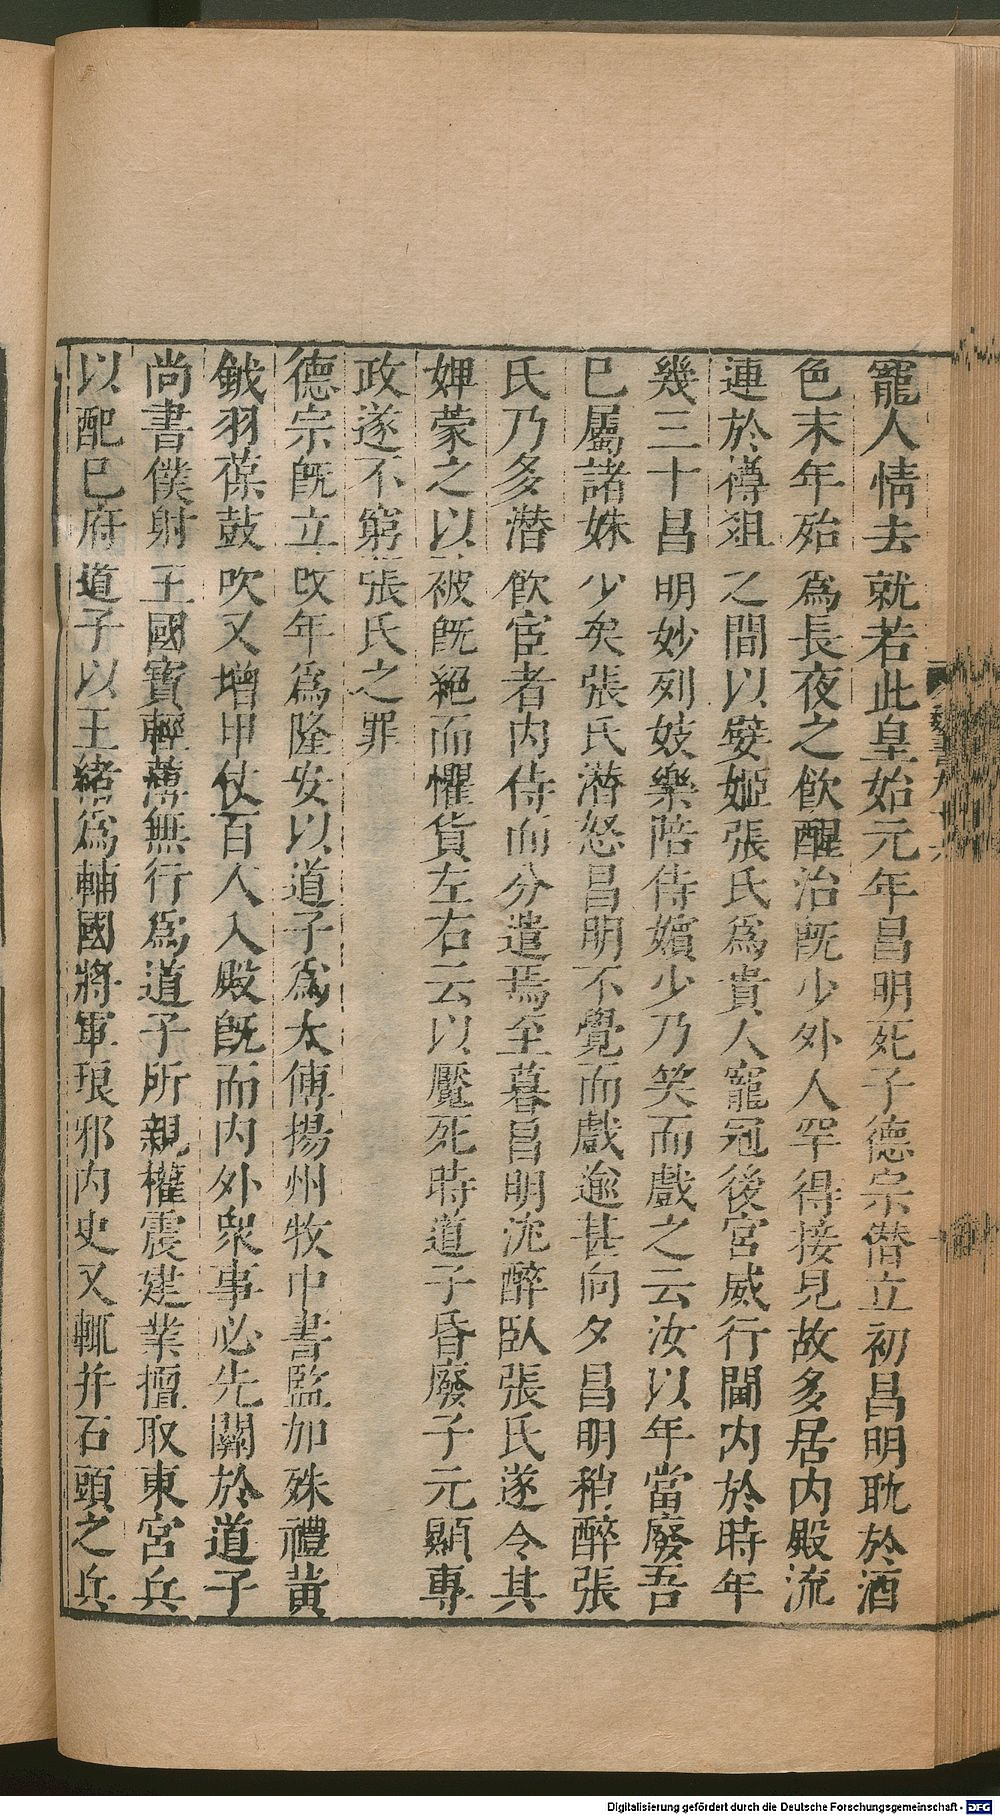 寵人情去就若此皇始元年昌明死子德宗僭立初昌明耽於酒
色末年殆爲長夜之飲醒治旣少外人罕得接見故多居内殿流
連於樽俎之間以嬖姬張氏爲貴人寵冠後宮威行閫内於時年
幾三十昌明妙列妓樂陪侍嬪少乃笑而戲之云汝以年當廢吾
已屬諸姝少矣張氏潛怒昌明不覺而戲逾甚向夕昌明稍醉張
氏乃多潛飲宦者内侍而分遣焉至暮昌明沈醉臥張氏遂令其
婢蒙之以被旣絕而懼貨左右云以魘死時道子昏廢子元顯專
政遂不窮張氏之罪
德宗旣立改年爲隆安以道子爲太傅揚州牧中書監加殊禮黃
鉞羽葆鼓吹又增甲仗百人入殿旣而内外衆事必先關於道子
尚書僕射王國寶輕薄無行爲道子所親權震建業擅取東宮兵
以配已府道子以王緒爲輔國將軍琅邪内史又輒并石頭之兵
魏書九十六
Digitalisierung gefördert durch die Deutsche Forschungsgemeinschaft - DFG